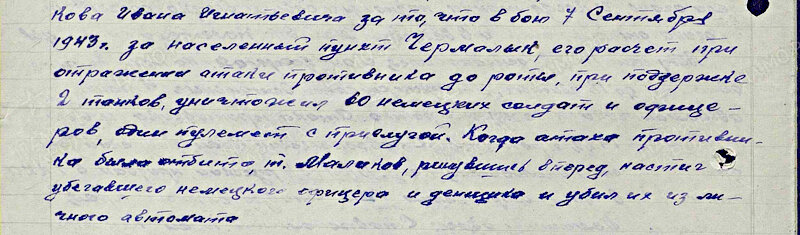 кова Ивана Игнатьевича за то, что в бою 7 Сентября
1943 г. за населенный пункт Чермалык, его расчет при
отражении атаки противника до роты, при поддержке
2 танков, уничтожил 60 немецких солдат и офице-
ров, один пулемет с прислугой. Когда атака противни-
ка была отбита, т. Малаков, ринувшись вперед, настиг
убегавшего немецкого офицера и денщика и убил их из ли-
чного автомата